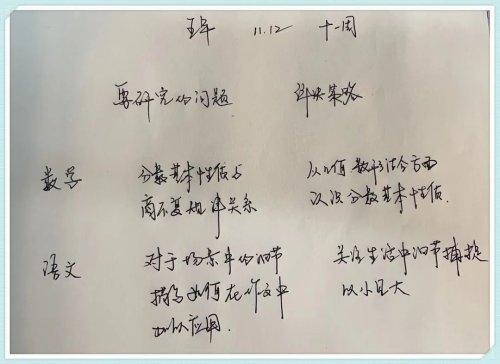 11.12 十一周
要研究的问题 解决策略
数学 分数基本性质与 从 值 数形结合方面
商不变规律关系 认识分数基本性质.
语文 对于场景中的细节 关注生活中细节捕捉
描写 如何在作文中 以小见大
加以应用.